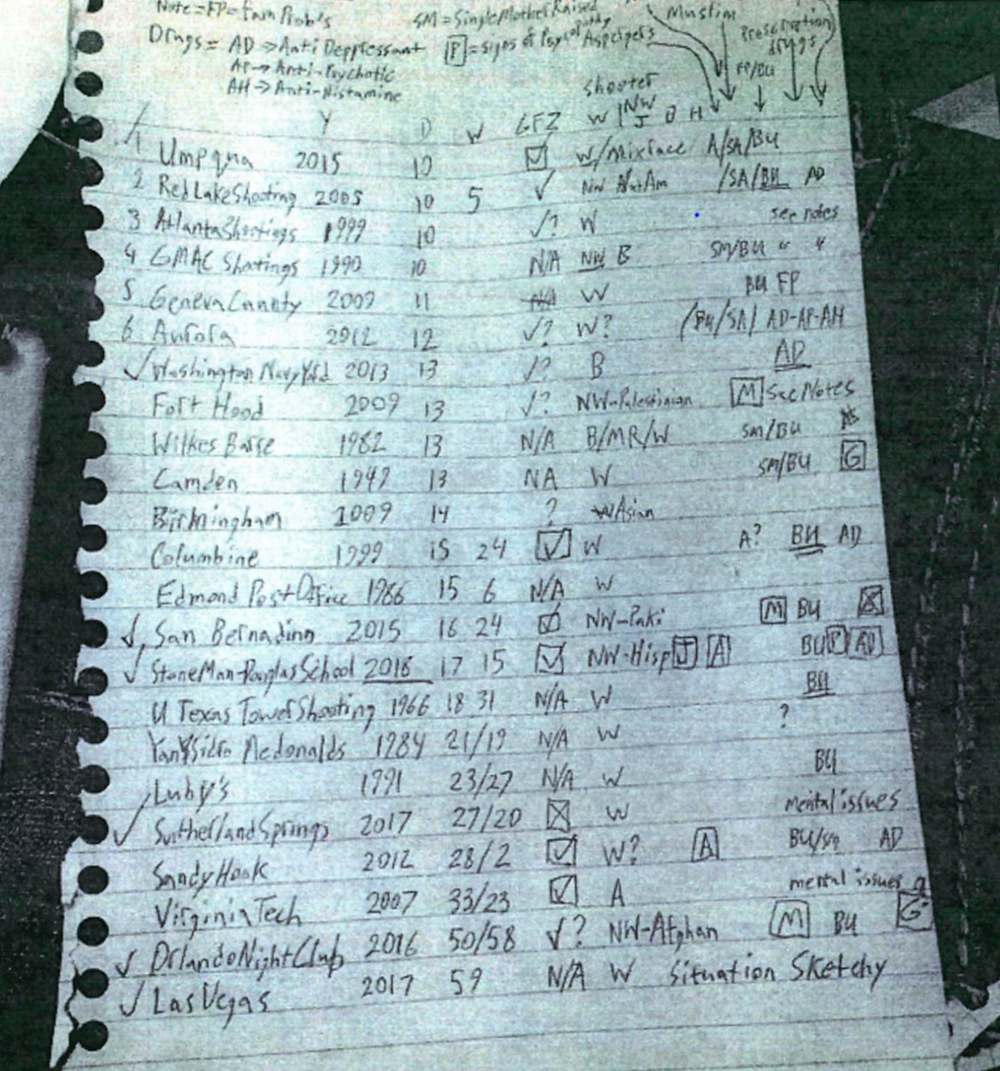 Note = FP = Fam Prob's SM = Single Mother Raised Muslim
Drugs = AD → Anti Deppressant [P] = signs of Aspergers Prescription drugs
AP → Anti-Psychotic FP/BU
AH → Anti-Histamine shooter
Y D W GFZ W NW J B H
1 Umpqua 2015 10 ☑ W/Mixrace A/SA/BU
2 Red Lake Shooting 2005 10 5 ✓ NW NatAm /SA/BU AD
3 Atlanta Shootings 1999 10 ✓? W see notes
4 GMAC Shootings 1990 10 N/A NW B SM/BU " "
5 Geneva County 2009 11 W BU FP
6 Aurora 2012 12 ✓? W? /BU/SA/ AD-AP-AH
✓ Washington Navy Yd 2013 13 ✓? B AD
Fort Hood 2009 13 ✓? NW-Palestinian [M] See Notes
Wilkes Barre 1982 13 N/A B/MR/W SM/BU
Camden 1949 13 NA W SM/BU [G]
Birmingham 2009 14 ? Asian
Columbine 1999 15 24 ☑ W A? BU AD
Edmond Post Office 1986 15 6 N/A W
✓ San Bernadino 2015 16 24 ☑ NW-Paki [M] BU ☒
✓ StoneMan-Douglas School 2018 17 15 ☑ NW-Hisp [J] [A] BU [P] [AD]
U Texas Tower Shooting 1966 18 31 N/A W BU
YanYsidro Mcdonalds 1984 21/19 N/A W ?
Luby's 1991 23/27 N/A W BU
✓ Sutherland Springs 2017 27/20 ☒ W mental issues
Sandy Hook 2012 28/2 ☑ W? [A] AD
Virginia Tech 2007 33/23 ☑ A mental issues
✓ Orlando Night Club 2016 50/58 ✓? NW-Afghan [M] BU [G]
✓ Las Vegas 2017 59 N/A W Situation Sketchy